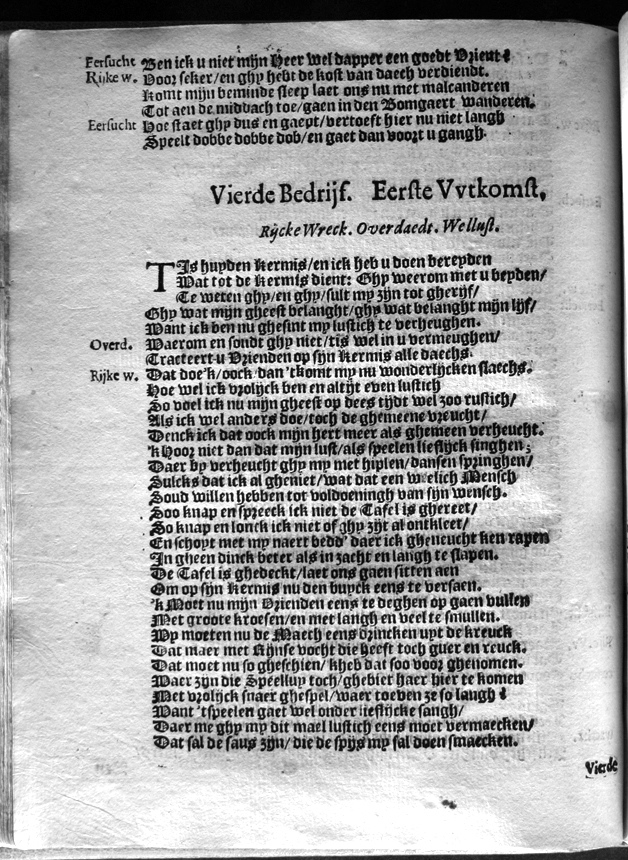 Eersucht Ben ick u niet mijn Heer wel dapper een goedt Vrient?
Rijke w. Voor seker/en ghy hebt de kost van daech verdiendt.
Komt mijn beminde sleep laet ons nu met malcanderen
Tot aen de middach toe/gaen in den Bomgaert wanderen.
Eersucht Hoe staet ghy dus en gaept/vertoeft hier nu niet langh
Speelt dobbe dobbe dob/en gaet dan voort u gangh.
Vierde Bedrijf. Eerste Vvtkomst,
Rijcke Wreck. Overdaedt. Wellust.
TIs huyden Kermis/en ick heb u doen bereyden
Wat tot de Kermis dient: Ghy weerom met u beyden/
Te weten ghy/en ghy/sult my zijn tot gherijf/
Ghy wat mijn gheest belanght/ghy wat belanght mijn lijf/
Want ick ben nu ghesint my lustich te verheughen.
Overd. Waerom en sondt ghy niet/tis wel in u vermeughen/
Tracteert u Vrienden op sijn Kermis alle daechs.
Rijke w. Dat doe'k/oock dan 'tkomt my nu wonderlijcken slaechs.
Hoe wel ick vrolijck ben en altijt even lustich
So voel ick nu mijn gheest op dees tijdt wel zoo rustich/
Als ick wel anders doe/toch de ghemeene vreucht/
Denck ick dat oock mijn hert meer als ghemeen verheucht.
'k Hoor niet dan dat mijn lust/als speelen lieflijck singhen;
Daer by verheucht ghy my met hiplen/dansen springhen/
Sulcks dat ick al gheniet/wat dat een weelich Mensch
Soud willen hebben tot voldoeningh van sijn wensch.
Soo knap en spreeck ick niet de Tafel is ghereet/
So knap en lonck ick niet of ghy zijt al ontkleet/
En schoyt met my naert bedd' daer ick gheneucht ken rapen
In gheen dinck beter als in zacht en langh te slapen.
De Tafel is ghedeckt/laet ons gaen sitten aen
Om op sijn Kermis nu den buyck eens te versaen.
'k Moet nu mijn Vrienden eens te deghen op gaen vullen
Met groote kroesen/en met langh en veel te smullen.
Wy moeten nu de Maech eens drincken uyt de kreuck
Dat maer met Rijnse vocht die heeft toch guer en reuck.
Dat moet nu so gheschien/kheb dat soo voor ghenomen.
Waer zijn die Speelluy toch/ghebier haer hier te komen
Met vrolijck snaer ghespel/waer toeven ze so langh?
Want 'tspeelen gaet wel onder lieflijcke sangh/
Daer me ghy my dit mael lustich eens moet vermaecken/
Dat sal de saus zijn/die de spijs my sal doen smaecken.
Vierde